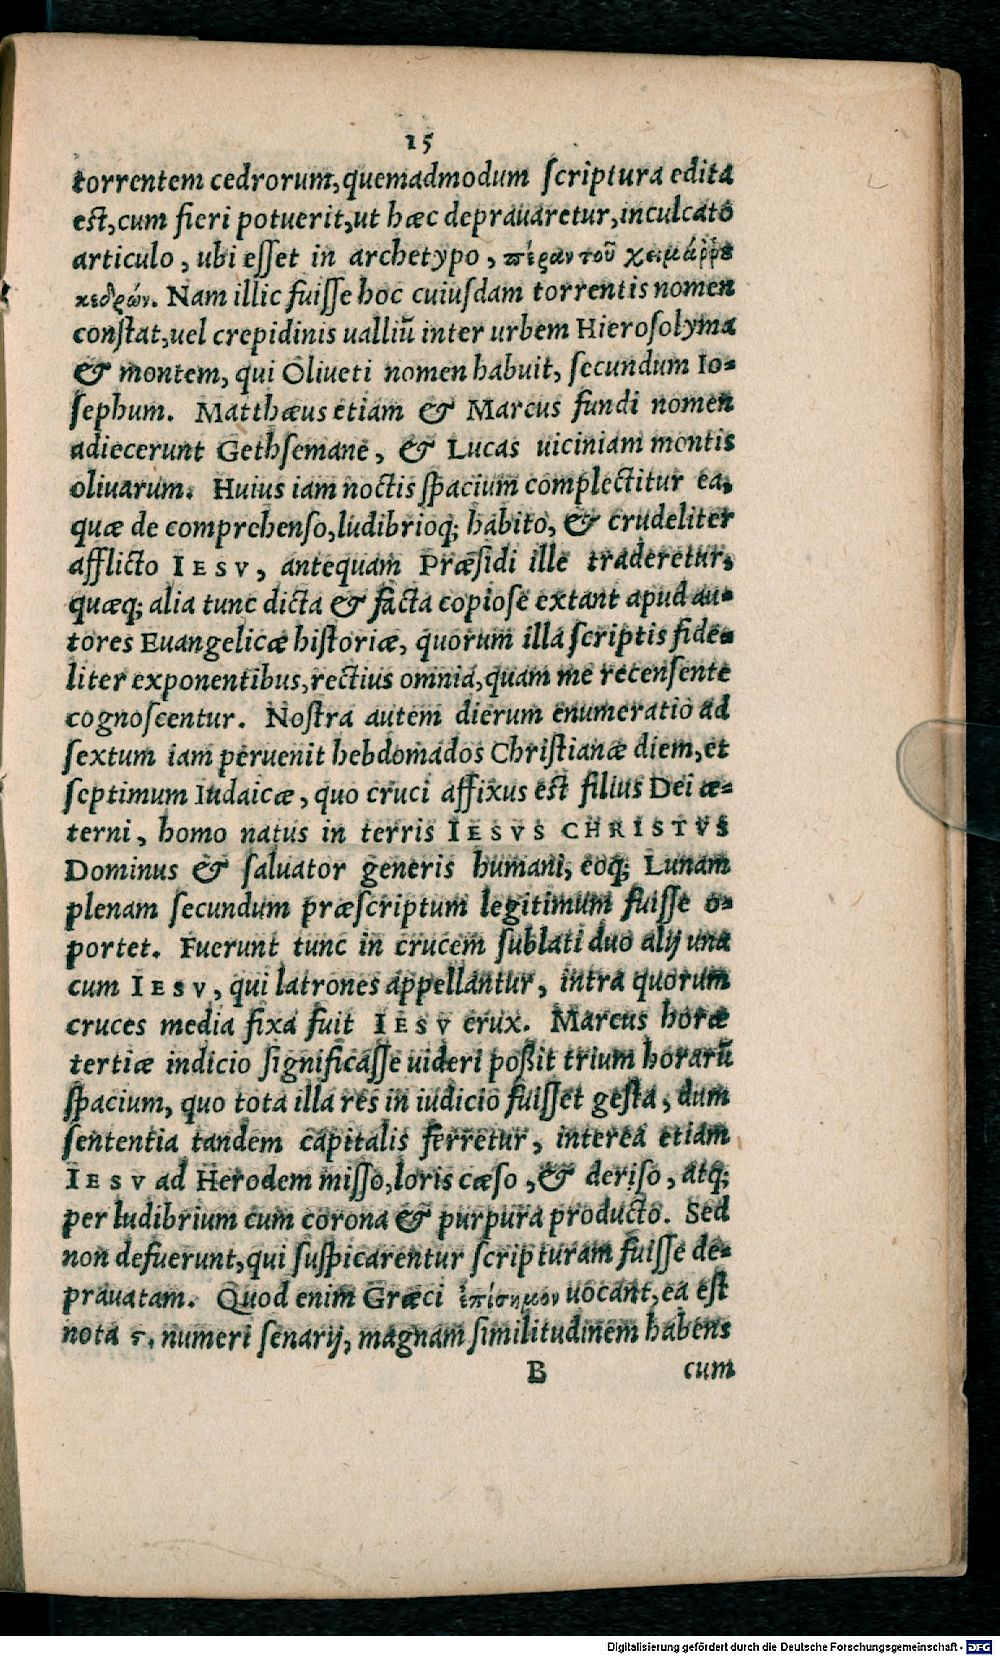 15
torrentem cedrorum, quemadmodum ſcriptura edita
eſt, cum fieri potuerit, ut hæc deprauaretur, inculcato
articulo, ubi eſſet in archetypo, πέραν τοῦ χειμάῤῥȣ
κεδρών. Nam illic fuiſſe hoc cuiuſdam torrentis nomen
conſtat, uel crepidinis ualliū inter urbem Hieroſolyma
& montem, qui Oliueti nomen habuit, ſecundum Io=
ſephum. Matthæus etiam & Marcus fundi nomen
adiecerunt Gethſemane, & Lucas uiciniam montis
oliuarum. Huius iam noctis ſpacium complectitur ea,
quæ de comprehenſo, ludibrioq; habito, & crudeliter
afflicto IESV, antequam Præſidi ille traderetur,
quæq; alia tunc dicta & facta copioſe extant apud au=
tores Euangelicæ hiſtoriæ, quorum illa ſcriptis fide=
liter exponentibus, rectius omnia, quam me recenſente
cognoſcentur. Noſtra autem dierum enumeratio ad
ſextum iam peruenit hebdomados Chriſtianæ diem, et
ſeptimum Iudaicæ, quo cruci affixus eſt filius Dei æ=
terni, homo natus in terris IESVS CHRISTVS
Dominus & ſaluator generis humani, eoq; Lunam
plenam ſecundum præſcriptum legitimum fuiſſe o=
portet. Fuerunt tunc in crucem ſublati duo alij una
cum IESV, qui latrones appellantur, intra quorum
cruces media fixa fuit IESV crux. Marcus horæ
tertiæ indicio ſignificaſſe uideri poßit trium horarū
ſpacium, quo tota illa res in iudicio fuiſſet geſta, dum
ſententia tandem capitalis ferretur, interea etiam
IESV ad Herodem miſſo, loris cæſo, & deriſo, atq;
per ludibrium cum corona & purpura producto. Sed
non defuerunt, qui ſuſpicarentur ſcripturam fuiſſe de=
prauatam. Quod enim Græci ἐπίσημον uocant, ea eſt
nota ϛ. numeri ſenarij, magnam ſimilitudinem habens
B cum
Digitalisierung gefördert durch die Deutsche Forschungsgemeinschaft - DFG